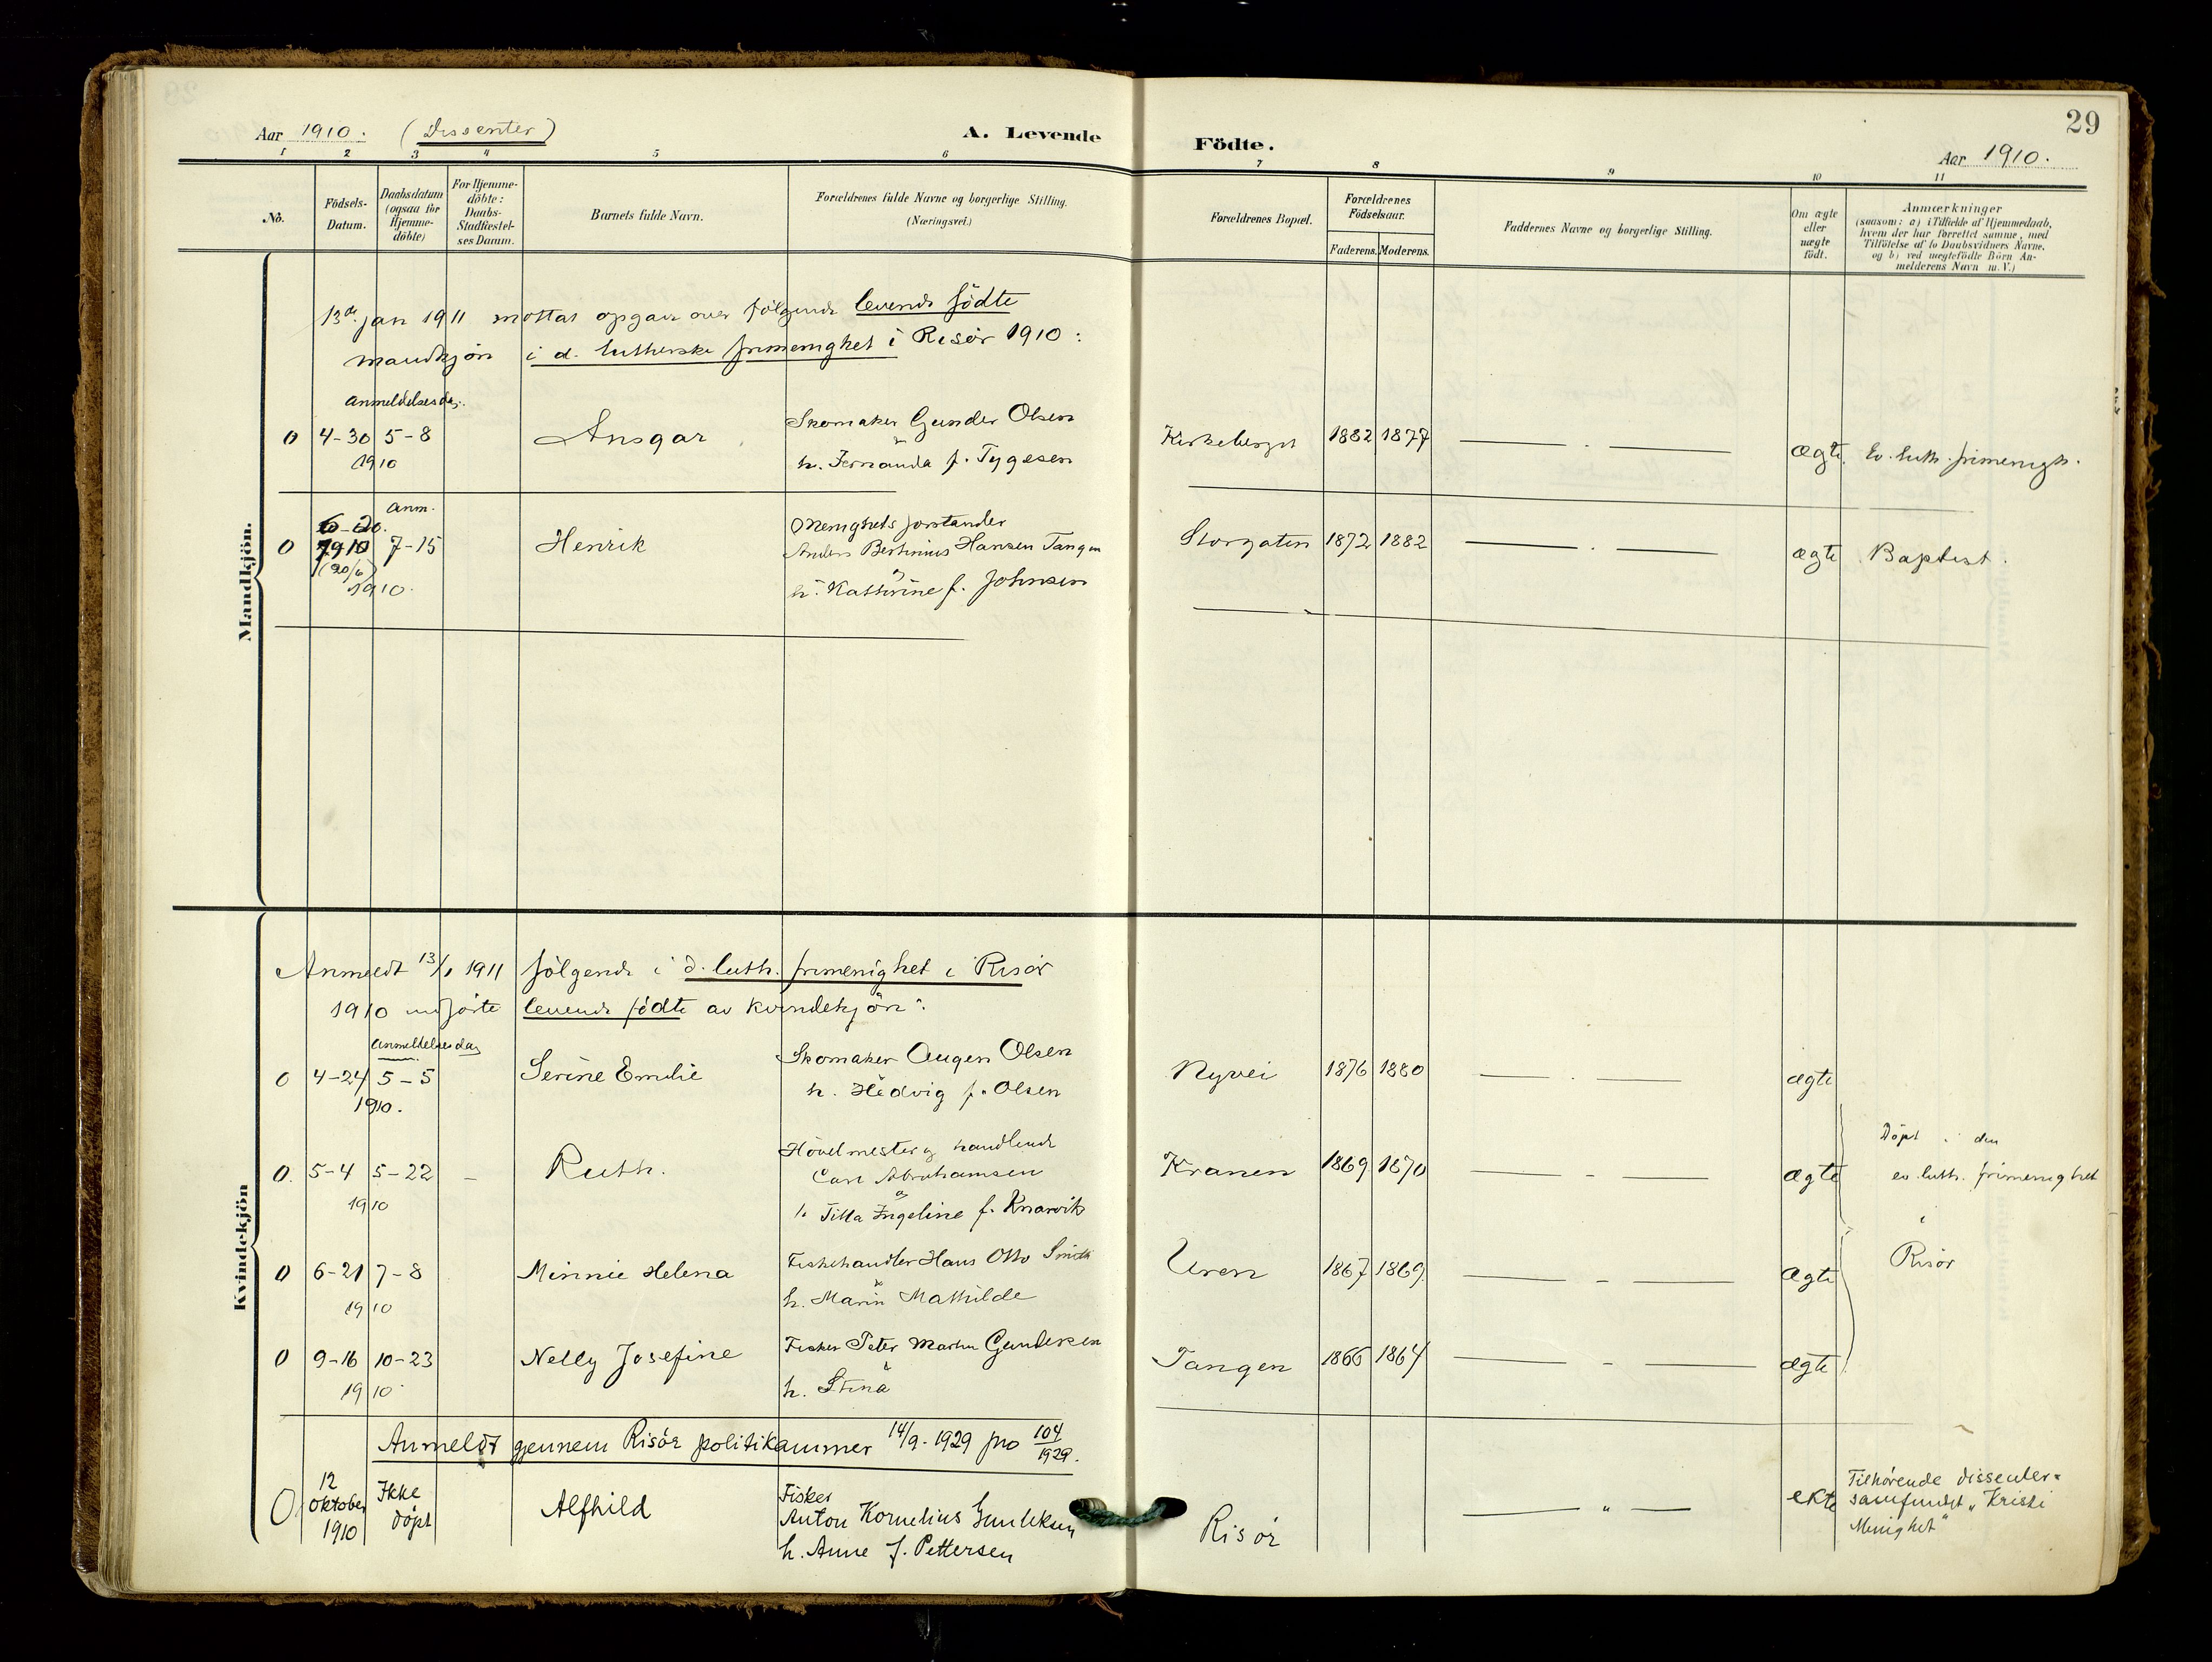 29
Aar 1910. (Dissenter)
A. Levende Födte.
Aar 1910.
1 2 3 4 5 6 7 8 9 10 11
No.
Födsels-
Datum.
Daabsdatum
(ogsaa for
Hjemme-
döbte)
For Hjemme-
döbte:
Daabs-
Stadfæstel-
ses Datum.
Barnets fulde Navn.
Forældrenes fulde Navne og borgerlige Stilling.
(Næringsvei.)
Forældrenes Bopæl.
Forældrenes
Födselsaar.
Faderens. Moderens.
Faddernes Navne og borgerlige Stilling.
Om ægte
eller
uægte
födt.
Anmærkninger
(saasom: a) i Tilfælde af Hjemmedaab,
hvem der har forrettet samme, med
Tilföielse af to Daabsvidners Navne,
og b) ved uægtefödte Börn An-
melderens Navn m. V.)
Mandkjön.
13de jan 1911 mottat opgave over følgende levende fødte
mandkjøn i d. lutherske frimenighet i Risør 1910:
Anmeldelsesdag.
0 4-30 5-8 Ansgar Skomaker Gunder Olsen Kirkeberget 1882 1877 — . — ægte Ev. luth. frimenigh.
1910
og
h. Fernanda f. Tygesen
anm.
6-20.
0 1910 7-15 Henrik Menighetsforstander Storgaten 1872 1882 — . — ægte Baptist.
(20/6)
Anders Bertinius Hansen Tangen
1910.
og
h. Kathrine f. Johnsen
Kvindekjön
Anmeldt 13/1 1911 følgende i d. luth. frimenighet i Risør
1910 indførte levende fødte av kvindekjøn:
Anmeldelsesdag
0 4-24 5-5 Serine Emilie Skomaker Augen Olsen Nyvei 1876 1880 — . — ægte
1910.
h. Hedvig f. Olsen
0. 5-4 5-22 – Ruth. Høvelmester og handlende Kranen 1869 1870 — - — ægte
1910
Carl Abrahamsen
og
h. Tilla Ingeline f. Knarvik
Döpt i den
ev. luth. frimenighet
i
Risør
0 6-21 7-8 Minnie Helena Fiskehandler Hans Otto Smith Uren 1867 1869 — - — ægte
1910
og
h. Marin Mathilde
0 9-16 10-23 Nelly Josefine Fisker Peter Martin Gundersen Tangen 1866 1864 — - — ægte
1910.
og
h. Stina
Anmeldt gjennem Risör politikammer 14/9. 1929 pro 104/1929.
0. 12 oktober 1910 Ikke döpt Alfhild Fisker Risör — " — ekte
Anton Kornelius Gundersen
h. Anne f. Pettersen
Tilhørende dissenter=
samfundet „Kristi
Menighet"